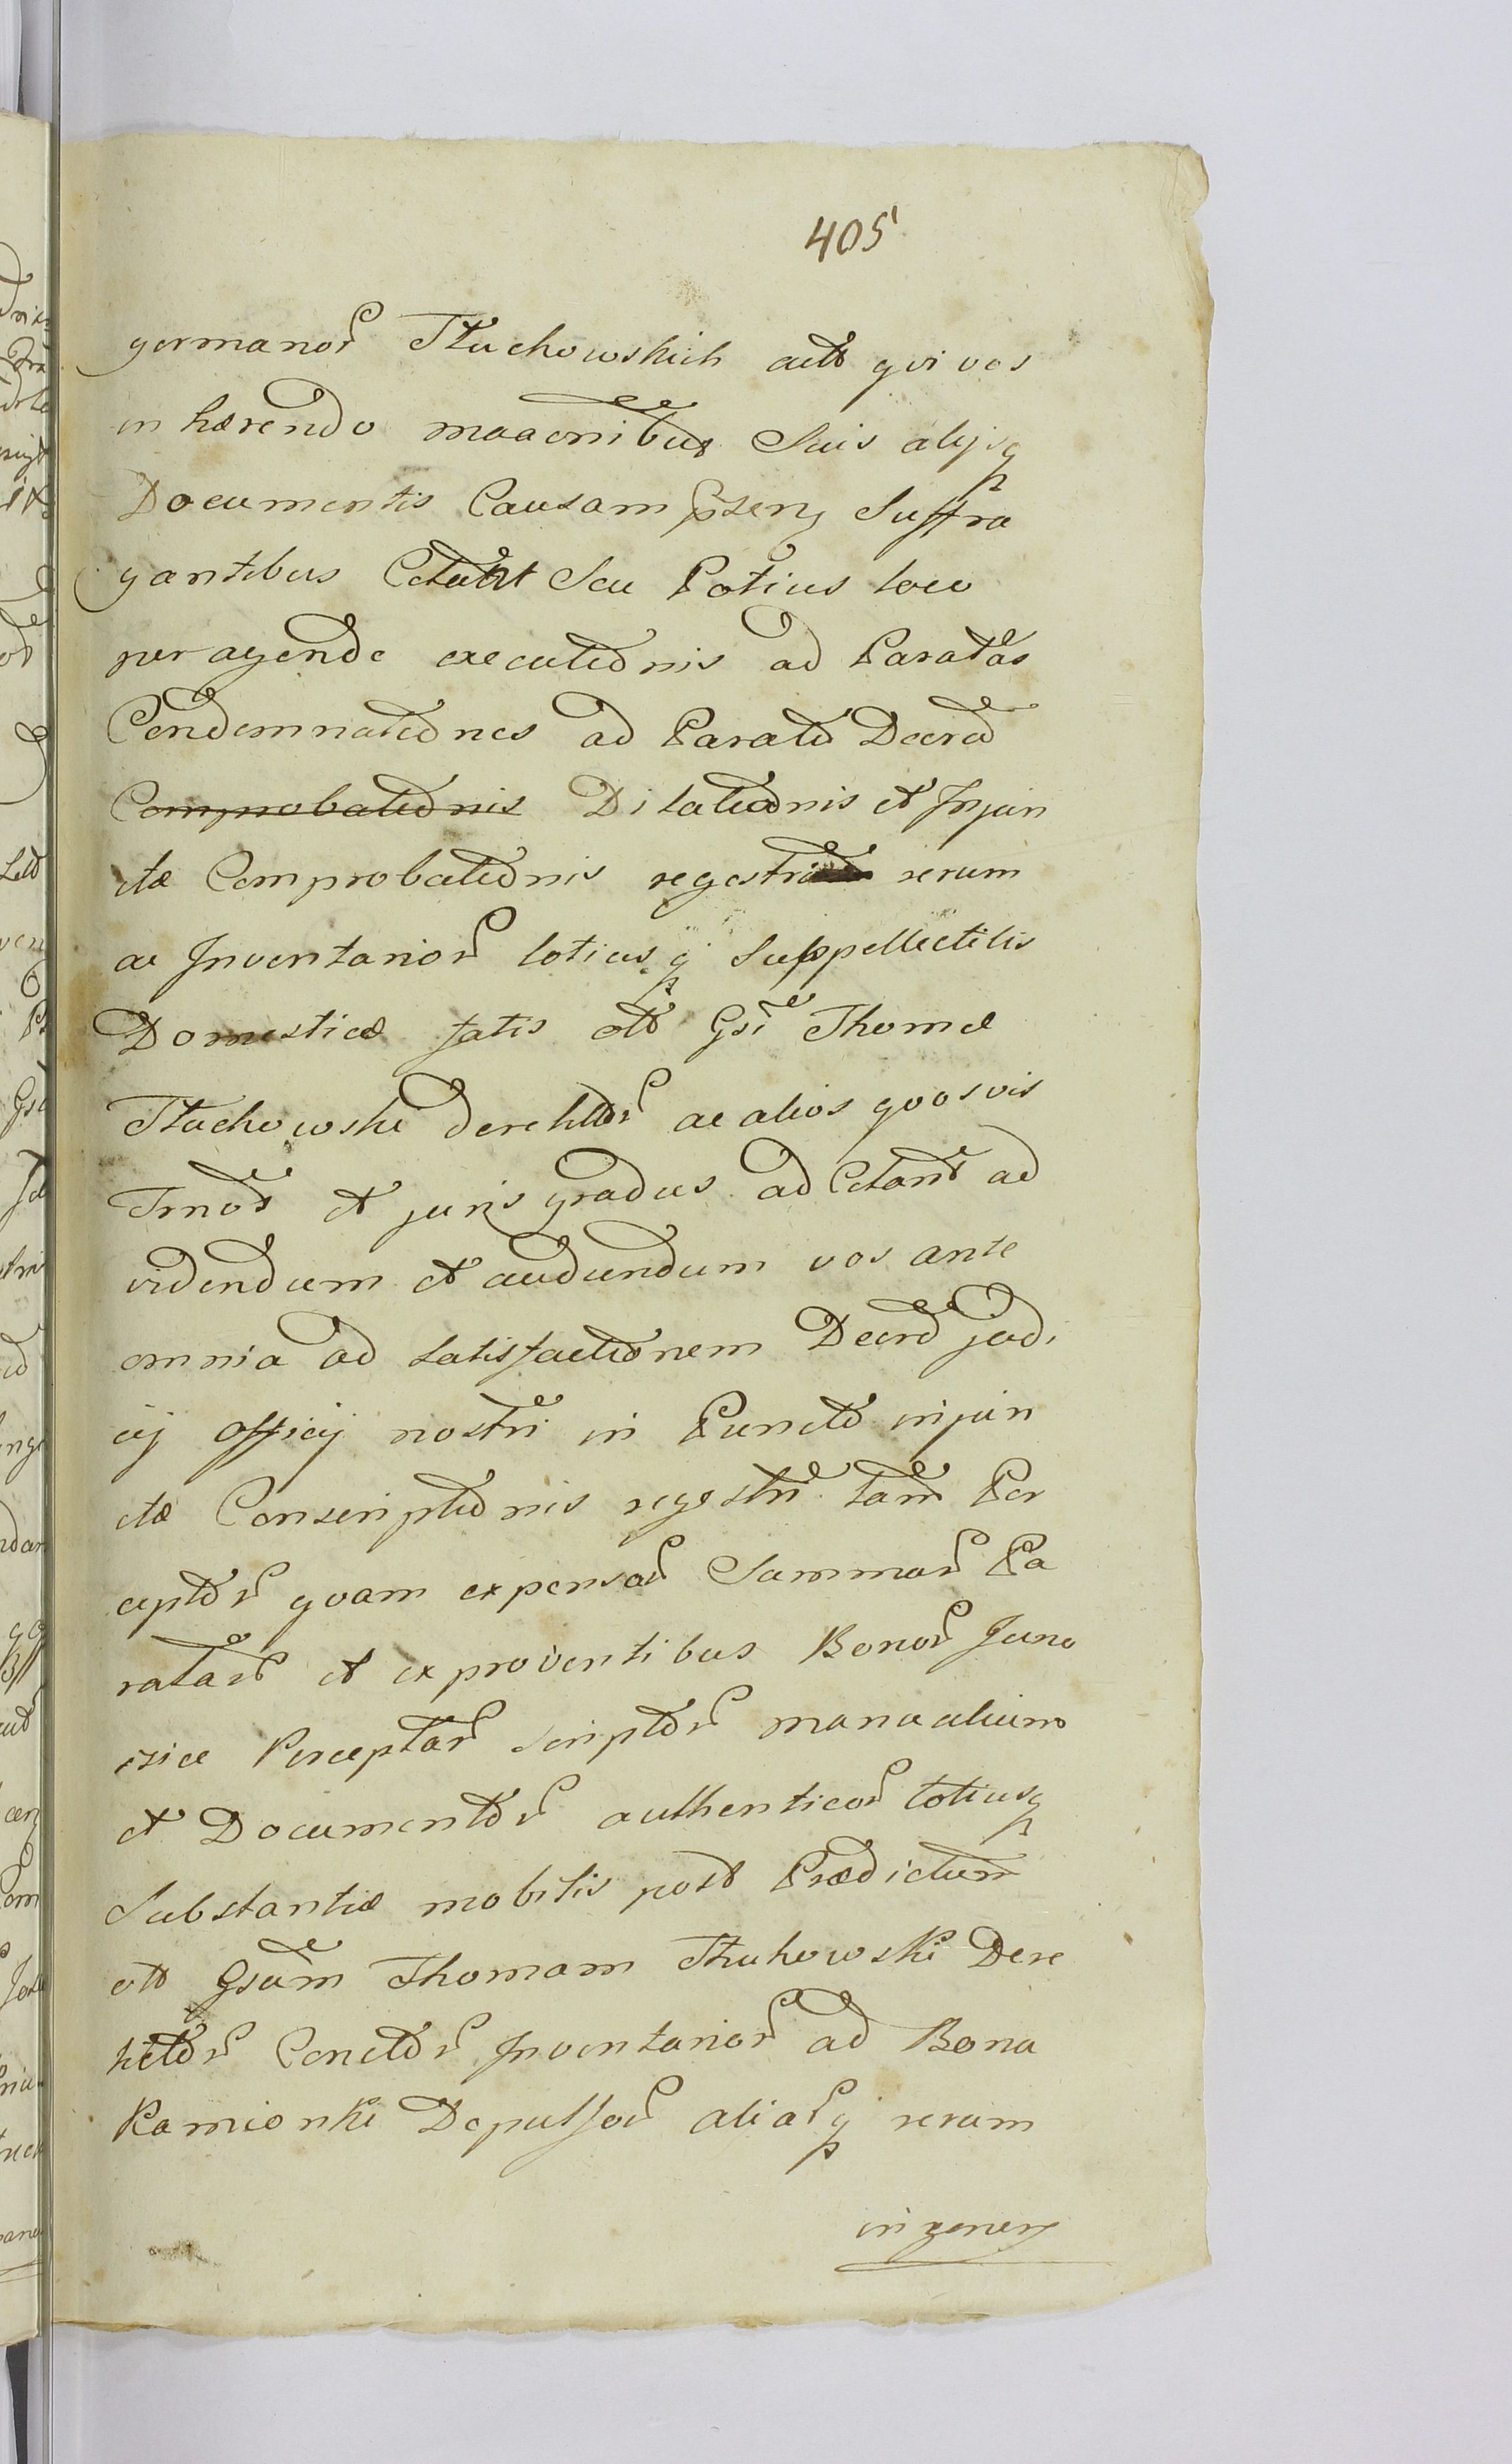 405
germanor Tłuchowskich actt qvi vos
in hærendo Suis alijsq
Documentis Causam pszen Suffra
gantibus Seu Potius loco
peragendæ executionis ad Paratas
Condemnationes ad Parata Decreta
Comprobationis Dilationis et Injun
ctæ Comprobationis regestri rerum
ac Inventarior totiusq Suppellectilis
Domesticæ fatis ott Gsi Thomæ
Tłuchowski derelittor ac alios qvosvis
Trnos et juris gradus ad Ctant ad
videndum et audiendum vos ante
omnia ad Satisfactionem Decrti judi
cij officij nostri in Puncto injun
ctæ Conscriptionis regestri tam Per
ceptor qvam expensar Summar Pa
ratar et ex proventibus Bonor Juno
Perceptar scriptor manualium
et Documentor authenticor totiusq
Substantiæ mobilis post Prædictum
ott Gsum Thomam Tłuchowski Dere
lictor Conctor Inventarior ad Bona
Kamionki Depulsor aliarq rerum
in gener